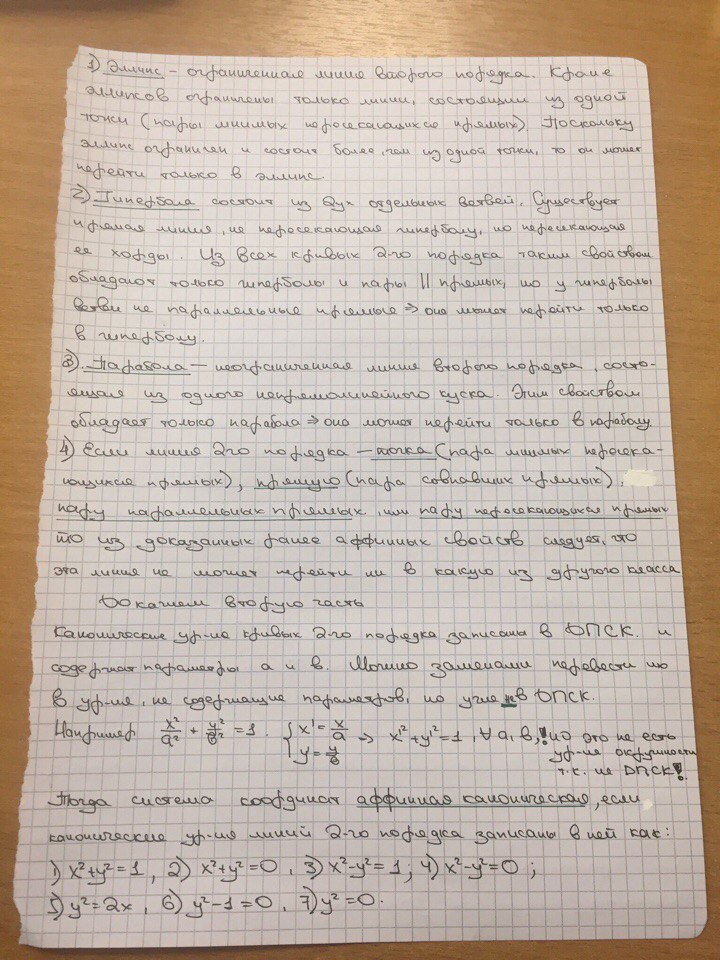 1) Эллипс – ограниченная линия второго порядка. Кроме
эллипсов ограничены только линии, состоящии из одной
точки (пары мнимых пересекающихся прямых). Поскольку
эллипс ограничен и состоит более, чем из одной точки, то он может
перейти только в эллипс.
2) Гипербола состоит из двух отдельных ветвей. Существует
прямая линия, не пересекающая гиперболу, но пересекающая
ее хорды. Из всех кривых 2-го порядка таким свойством
обладают только гиперболы и пары || прямых, но у гиперболы
ветви не параллельные прямые ⇒ она может перейти только
в гиперболу.
3) Парабола – неограниченная линия второго порядка, состо-
ящая из одного непрямолинейного куска. Этим свойством
обладает только парабола ⇒ она может перейти только в параболу
4) Если линия 2-го порядка – точка (пара мнимых пересека-
ющихся прямых), прямую (пара совпавших прямых),
пару параллельных прямых, или пару пересекающихся прямых
то из доказанных ранее аффинных свойств следует, что
эта линия не может перейти ни в какую из другого класса
Докажем вторую часть
Канонические ур-ие кривых 2-го порядка записаны в ДПСК. и
содержат параметры a и в. Можно заменами перевести но
в ур-ие, не содержащие параметров, но уже не в ДПСК.
Например x²/a² + y²/в² = 1. { x' = x/a y' = y/в ⇒ x'²+y'²=1, ∀ a, в, ! но это не есть
ур-ие окружности
т.к. не ДПСК!
Тогда система координат аффинная каноническая, если
канонические ур-ия линий 2-го порядка записаны в ней как:
1) x²+y²=1, 2) x²+y²=0, 3) x²-y²=1; 4) x²-y²=0;
5) y²=2x, 6) y²-1=0, 7) y²=0.